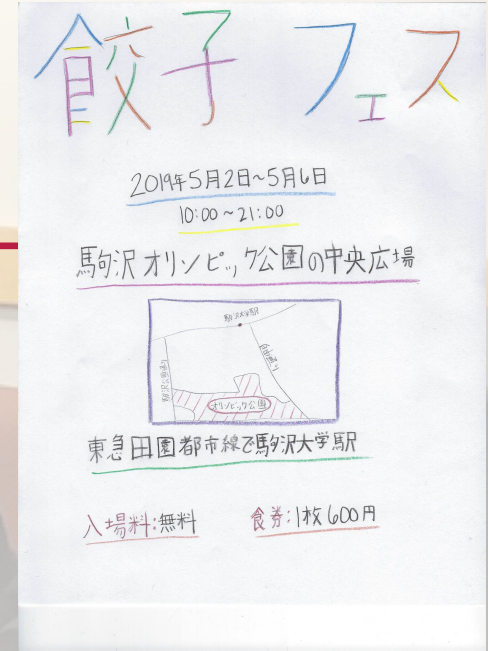 餃子 フェス
2019年5月2日～5月6日
10:00～21:00
駒沢オリンピック公園の中央広場
駒沢大学駅
自由通り
駒沢公園通り
オリンピック公園
東急田園都市線で駒沢大学駅
入場料:無料
食券:1枚600円